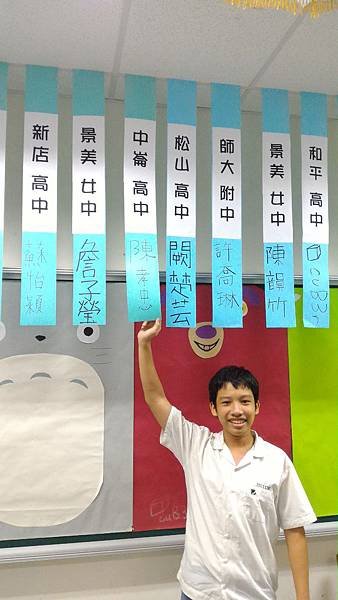 新店高中
怡穎
景美女中
詹子瑩
中崙高中
陳孝忠
松山高中
闕楚芸
師大附中
許喬琳
景美女中
陳韻竹
和平高中